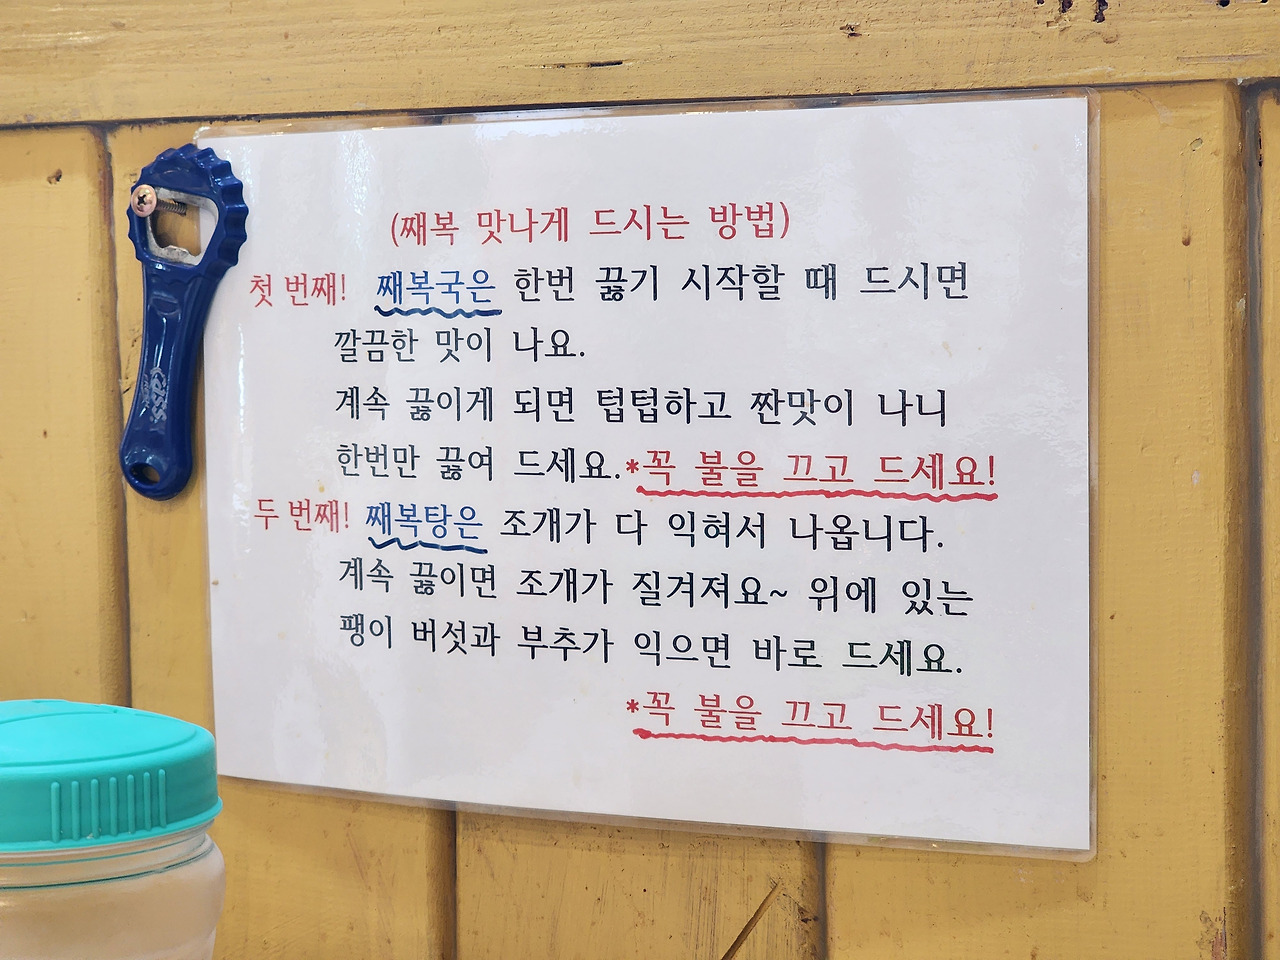 (째복 맛나게 드시는 방법)
첫 번째! 째복국은 한번 끓기 시작할 때 드시면
깔끔한 맛이 나요.
계속 끓이게 되면 텁텁하고 짠맛이 나니
한번만 끓여 드세요.*꼭 불을 끄고 드세요!
두 번째! 째복탕은 조개가 다 익혀서 나옵니다.
계속 끓이면 조개가 질겨져요~ 위에 있는
팽이 버섯과 부추가 익으면 바로 드세요.
*꼭 불을 끄고 드세요!